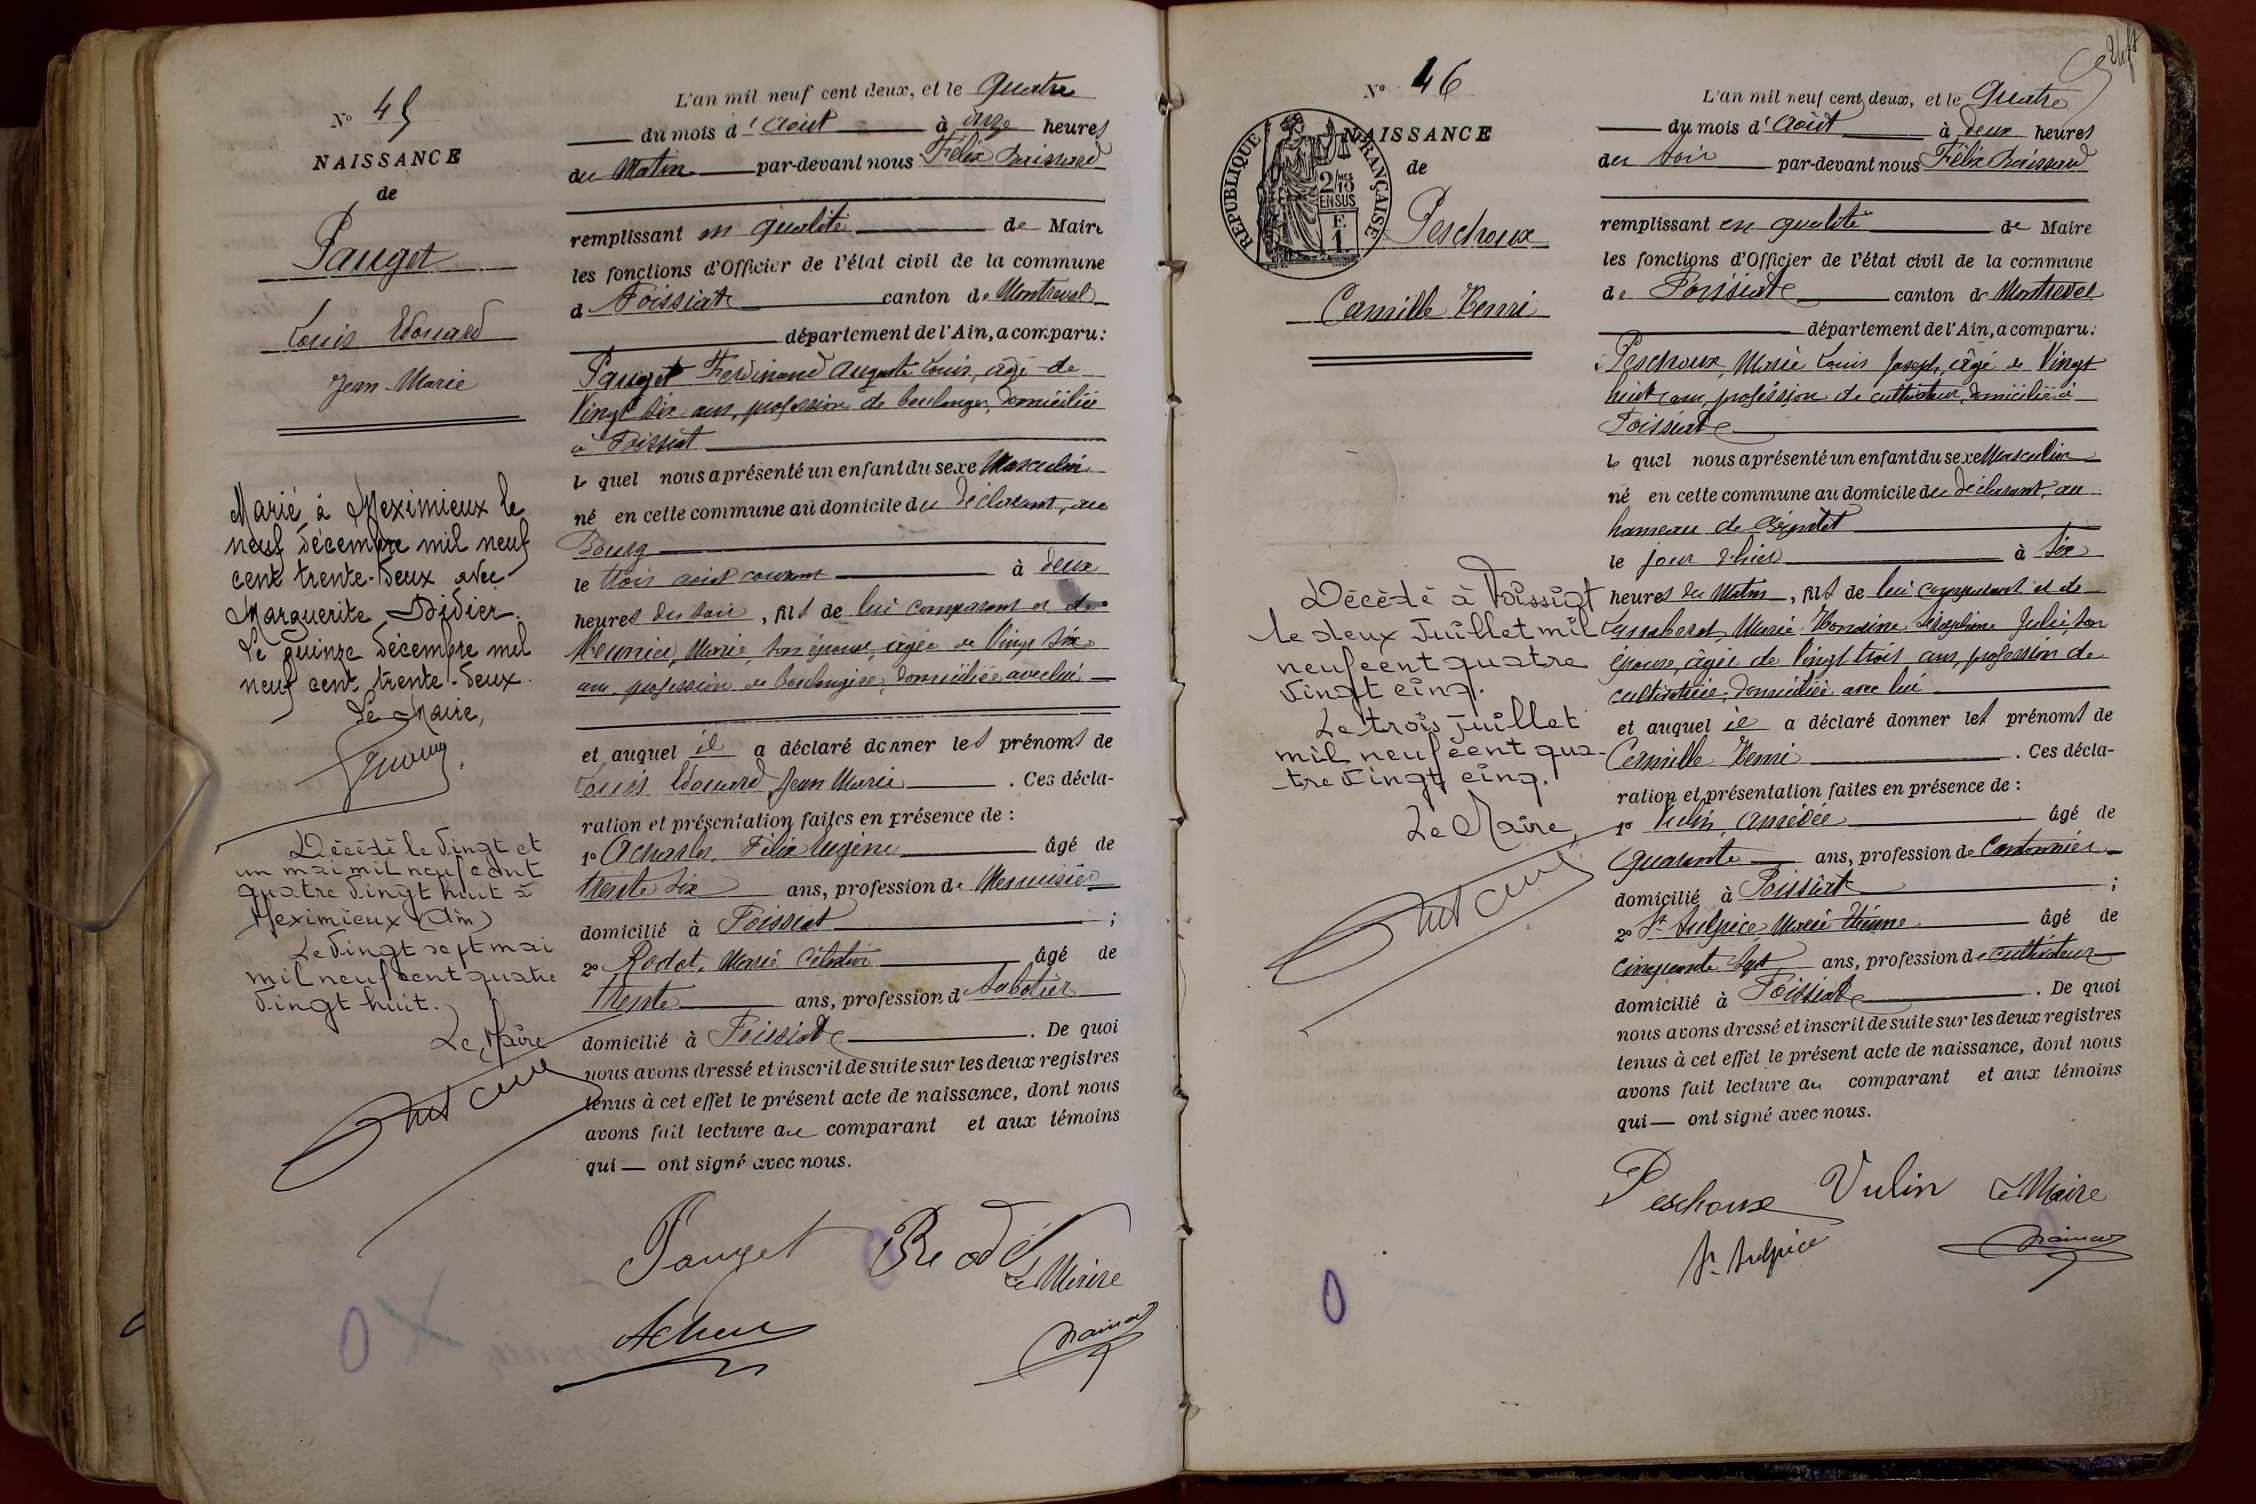 N° 45
NAISSANCE
de
Pauget
Louis Edouard
Jean-Marie
Marié à Meximieux le
neuf décembre mil neuf
cent trente-deux avec
Marguerite Didier.
Le quinze décembre mil
neuf cent trente-deux.
Le Maire,
Décédé le vingt et
un mai mil neuf cent
quatre vingt huit à
Meximieux (Ain)
Le vingt sept mai
mil neuf cent quatre
vingt huit.
Le Maire
L'an mil neuf cent deux, et le Quatre
du mois d'Août à onze heures
du Matin par-devant nous Félix
remplissant en qualité de Maire
les fonctions d'Officier de l'état civil de la commune
d Foissiat canton de Montrevel
département de l'Ain, a comparu:
Pauget Ferdinand Auguste Louis, âgé de
Vingt six ans, profession de boulanger, domicilié
à Foissiat
le quel nous a présenté un enfant du sexe Masculin
né en cette commune au domicile du déclarant, au
Bourg
le trois août courant à deux
heures du soir, fils de lui comparant et de
Meunier, Marie, son épouse, âgée de Vingt six
ans, profession de boulangère, domiciliée avec lui
et auquel il a déclaré donner les prénoms de
Louis Edouard Jean Marie. Ces décla-
ration et présentation faites en présence de :
1° Félix Eugène âgé de
trente six ans, profession de Menuisier
domicilié à Foissiat ;
2° Rodet, Marie Célestin âgé de
trente ans, profession d sabotier
domicilié à Foissiat. De quoi
nous avons dressé et inscrit de suite sur les deux registres
tenus à cet effet le présent acte de naissance, dont nous
avons fait lecture au comparant et aux témoins
qui — ont signé avec nous.
Pauget Rodet
Le Maire
N° 46
NAISSANCE
de
RÉPUBLIQUE FRANÇAISE
2/10mes
EN SUS
F
1
Peschoux
Camille Henri
Décédé à Foissiat
le deux Juillet mil
neuf cent quatre
vingt cinq.
Le trois Juillet
mil neuf cent qua-
tre vingt cinq.
Le Maire,
L'an mil neuf cent deux, et le Quatre
du mois d'Août à deux heures
du soir par-devant nous Félix
remplissant en qualité de Maire
les fonctions d'Officier de l'état civil de la commune
de Foissiat canton de Montrevel
département de l'Ain, a comparu:
Peschoux, Marie Louis Joseph, âgé de Vingt
huit ans, profession de cultivateur, domicilié à
Foissiat
le quel nous a présenté un enfant du sexe Masculin
né en cette commune au domicile du déclarant, au
hameau de
le jour d'hier à six
heures du Matin, fils de lui comparant et de
Marie Séraphine Julie, son
épouse, âgée de Vingt trois ans, profession de
cultivatrice, domiciliée avec lui
et auquel il a déclaré donner les prénoms de
Camille Henri. Ces décla-
ration et présentation faites en présence de :
1° Vulin, Amédée âgé de
Quarante ans, profession de Cantonnier
domicilié à Foissiat ;
2° St Sulpice Marie Etienne âgé de
Cinquante sept ans, profession de cultivateur
domicilié à Foissiat. De quoi
nous avons dressé et inscrit de suite sur les deux registres
tenus à cet effet le présent acte de naissance, dont nous
avons fait lecture au comparant et aux témoins
qui — ont signé avec nous.
Peschoux Vulin Le Maire
St Sulpice